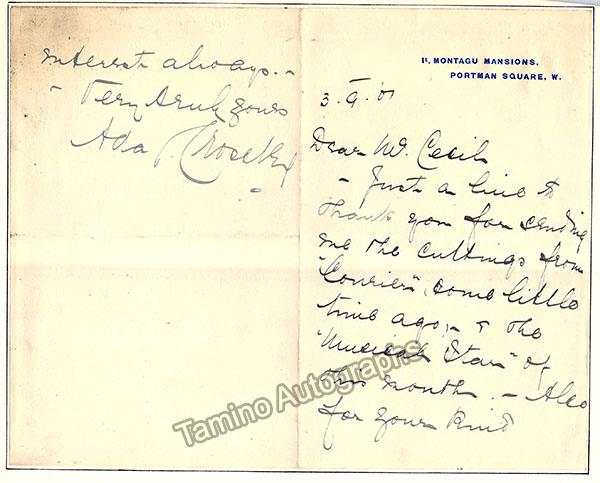 1E, MONTAGU MANSIONS,
PORTMAN SQUARE, W.
3. 9. 01
Dear Mr. Cecil
- Just a line to
thank you for sending
me the cuttings from
"Courier", some little
time ago, - & the
"Musical Star" of
this month. - Also
for your kind
interest always. -
- Very truly yours
Ada Crossley
Tamino Autographs